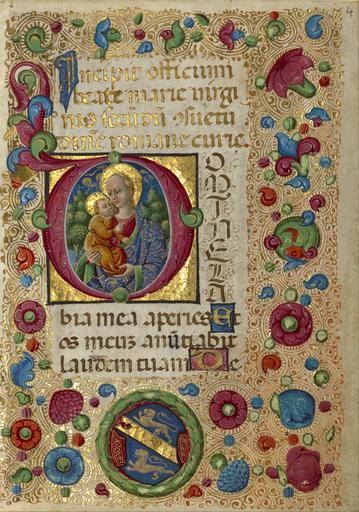 Incipit officium
beate marie virgi
nis secūdū ɔsuetu
dinē romane curie.
DOMINE LA
bia mea aperies Et
os meuz anūtiabit
laudem tuam De